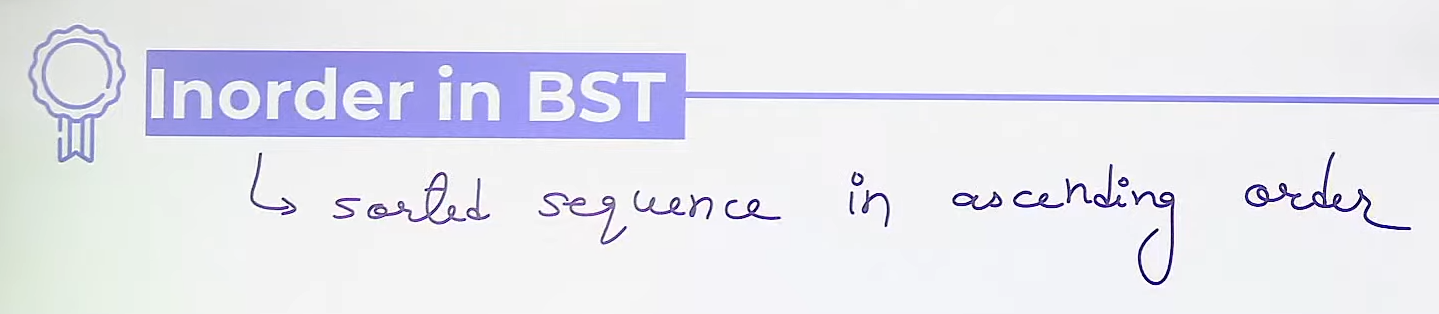 Inorder in BST
↳ sorted sequence in ascending order